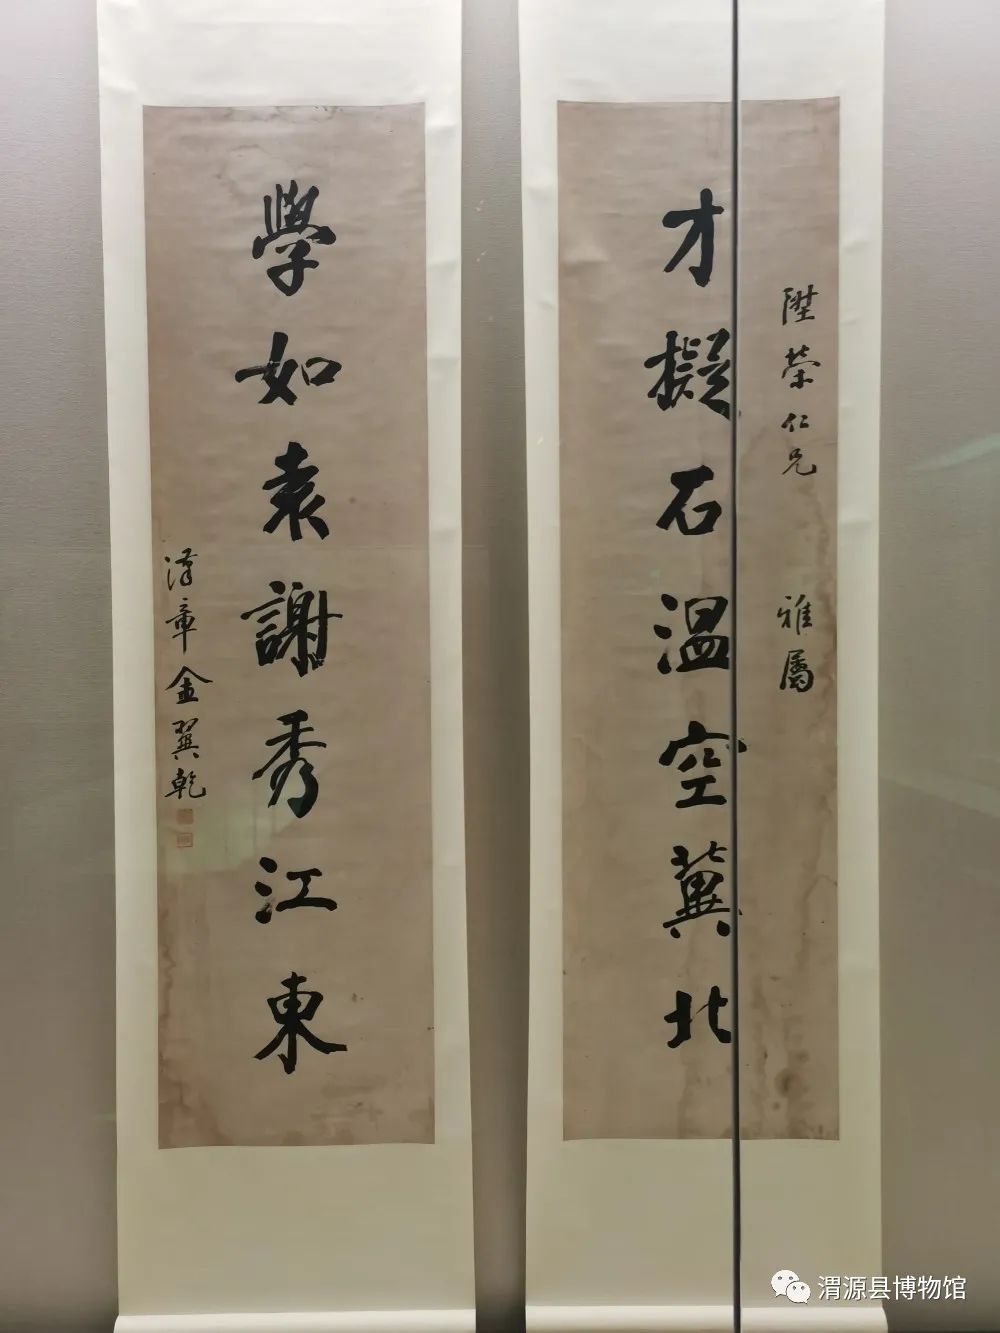 陞榮仁兄 雅屬
才擬石温空冀北
學如袁謝秀江東
漢章金翼乾
渭源县博物馆